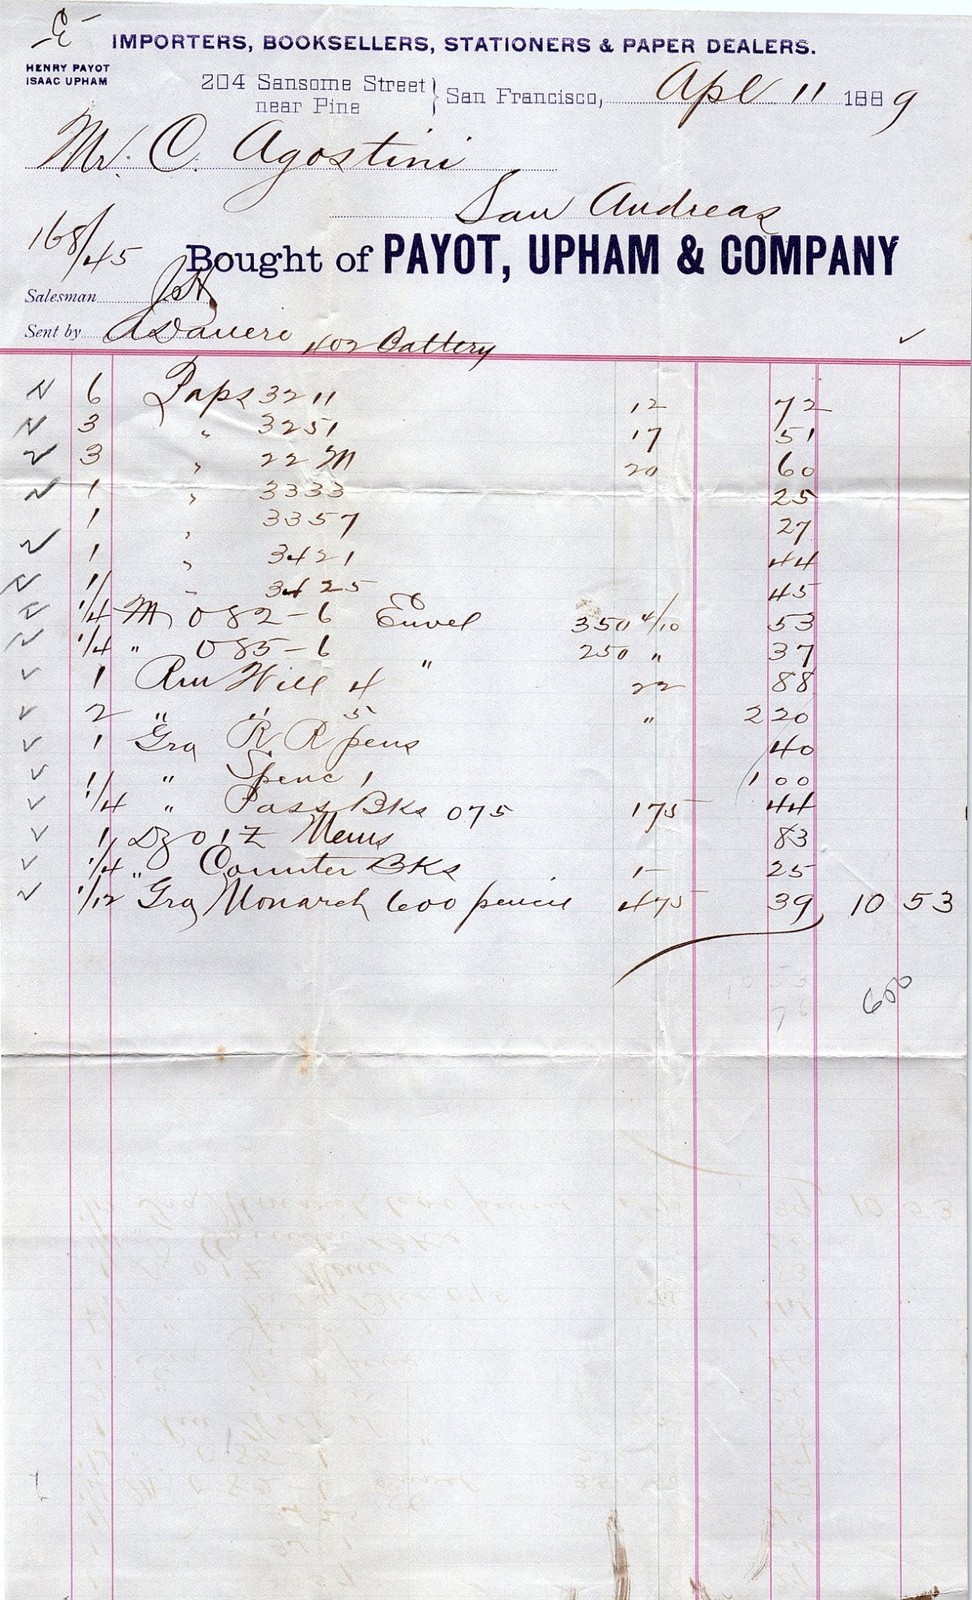 IMPORTERS, BOOKSELLERS, STATIONERS & PAPER DEALERS.
HENRY PAYOT
ISAAC UPHAM
204 Sansome Street
near Pine
San Francisco, Apl 11 1889
Mr. C. Agostini
San Andreas
168/45
Bought of PAYOT, UPHAM & COMPANY
Salesman
Sent by
402 Battery
6 Paps 3211 12 72
3 " 3251 17 51
3 " 22 M 20 60
1 " 3333 25
1 " 3357 27
1 " 3421 44
1 " 3425 45
1/4 M 082-6 Envel 350 4/10 53
1/4 " 085-6 " 250 " 37
1 Rm Will 4 22 88
2 " " 5 " 2 20
1 Gro R R pens 40
1 " Spenc 1 1 00
1/4 " Pass Bks 075 175 44
1 Dz 017 Mems 83
1/4 " Counter BKs 1- 25
1/12 Gro Monarch 600 pencil 475 39 10 53
10 53
76
600